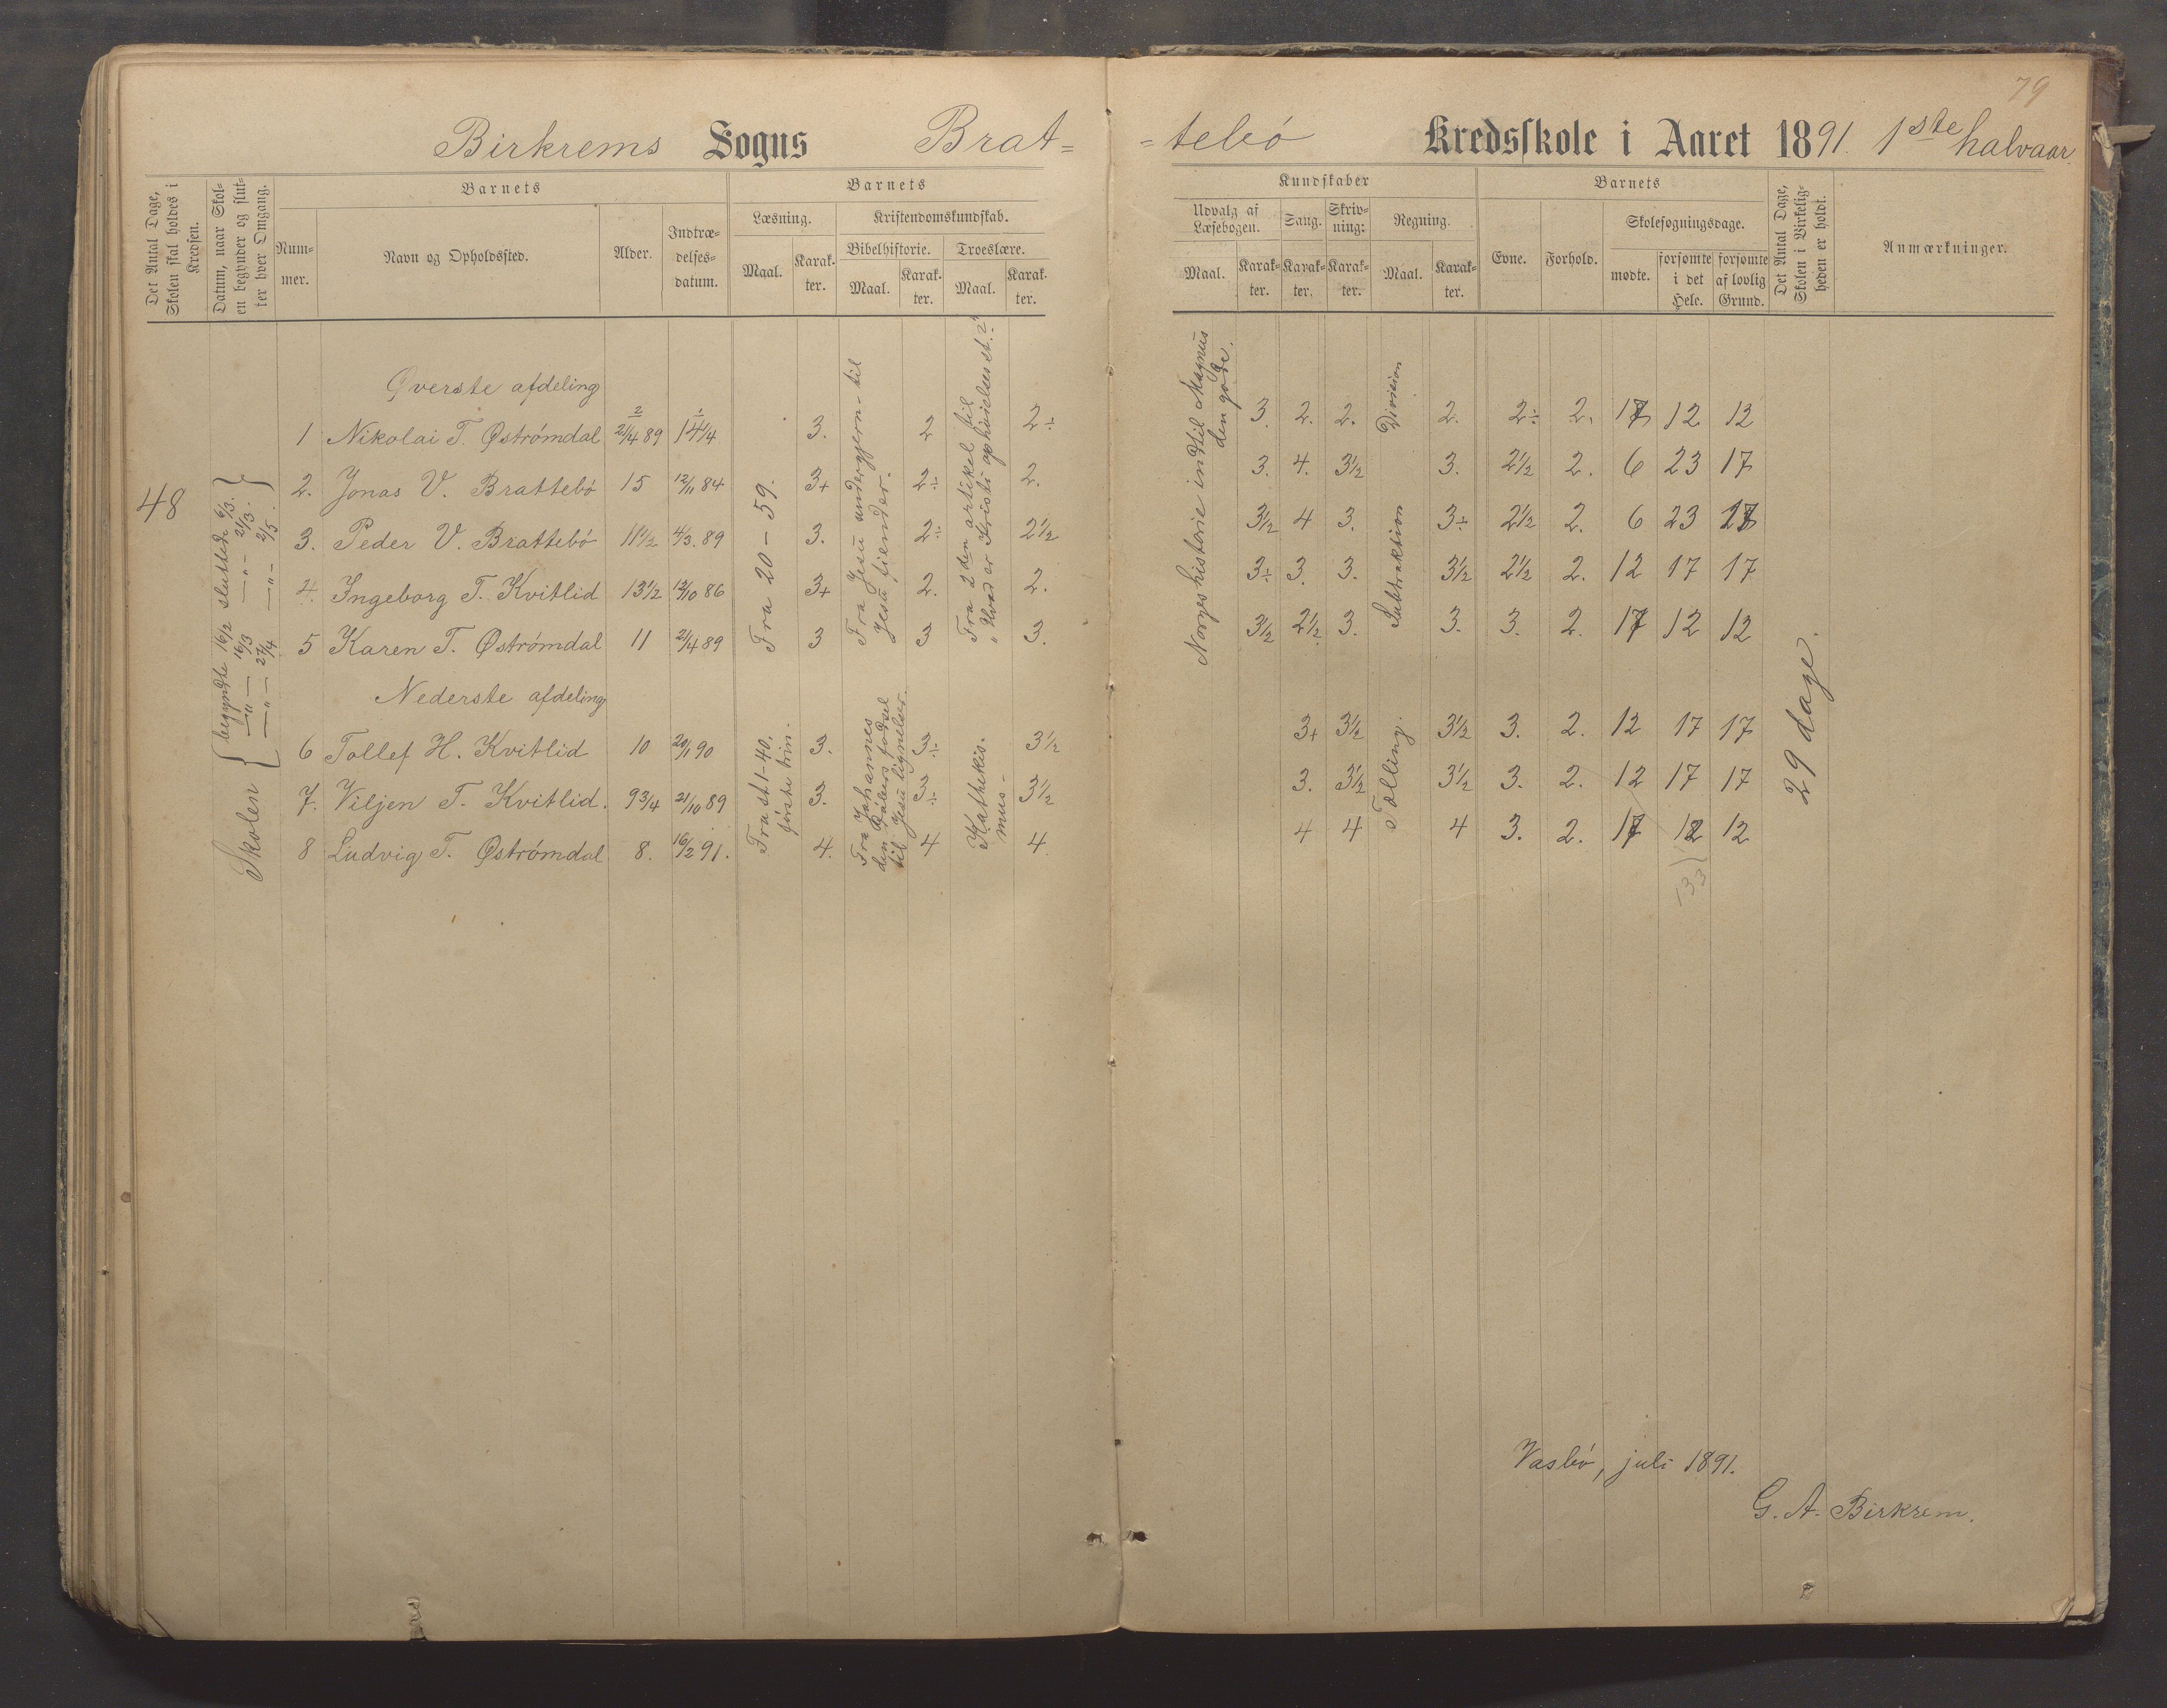 79
Birkrems Sogns Brat=
=tebö Kredsskole i Aaret 1891. 1ste halvaar
Det Antal Dage, Skolen skal holdes i Kredsen.
Datum, naar Skolen begynder og slutter hver Omgang.
Barnets
Nummer.
Navn og Opholdssted.
Alder.
Indtrædelsesdatum.
Barnets
Læsning.
Maal. Karakter.
Kristendomskundskab.
Bibelhistorie. Troeslære.
Maal. Karakter. Maal. Karakter.
Kundskaber
Udvalg af Læsebogen. Sang. Skrivning: Regning.
Maal. Karakter. Karakter. Karakter. Maal. Karakter.
Barnets
Evne. Forhold. Skolesøgningsdage.
mødte. forsømte i det Hele. forsømte af lovlig Grund.
Det Antal Dage, Skolen i Virkeligheden er holdt.
Anmærkninger.
48
Skolen { begyndte 16/2 sluttede 6/3. }
—"— 16/3 —"— 21/3.
—"— 27/4 —"— 2/5.
Øverste afdeling
1 Nikolai T. Øströmdal 21/4 89 14 1/4 3. 2 2÷ 3. 2. 2. 2. 2÷ 2. 17 12 12
2. Jonas V. Brattebö 15 12/11 84 3+ 2÷ 2. 3. 4. 3½ 3. 2½ 2. 6 23 17
3. Peder V. Brattebö 11½ 4/3. 89 3. 2÷ 2½ 3½ 4 3. 3÷ 2½ 2. 6 23 17
4. Ingeborg T. Kvitlid 13½ 12/10 86 3+ 2. 2. 3÷ 3. 3. 3½ 2½ 2. 12 17 17
5 Karen T. Øströmdal 11 21/4 89 3 3 3. 3½ 2½ 3. 3. 3. 2. 17 12 12
Fra 20 – 59.
Fra Jesu undergjern- til Jesu fiender.
Fra 2den artikel til
"Hvad er Kristi ophøielsesst.?"
Norges historie indtil Magnus den gode.
Division
Subtraktion
Nederste afdeling
6 Tollef H. Kvitlid 10 20/1 90 3. 3÷ 3½ 3+ 3½ 3½ 3. 2. 12 17 17
7. Viljen T. Kvitlid. 9¾ 21/10 89 3. 3÷ 3½ 3. 3½ 3½ 3. 2. 12 17 17
8 Ludvig T. Øströmdal 8. 16/2 91. 4. 4 4. 4 4 4 3. 2. 17 12 12
Fra st 1-40. første trin.
Fra Johannes den Døbers fødsel til Jesu lignelser.
Kathekis-
mus-
Tælling.
29 dage.
Vasbö, juli 1891.
G. A. Birkrem.